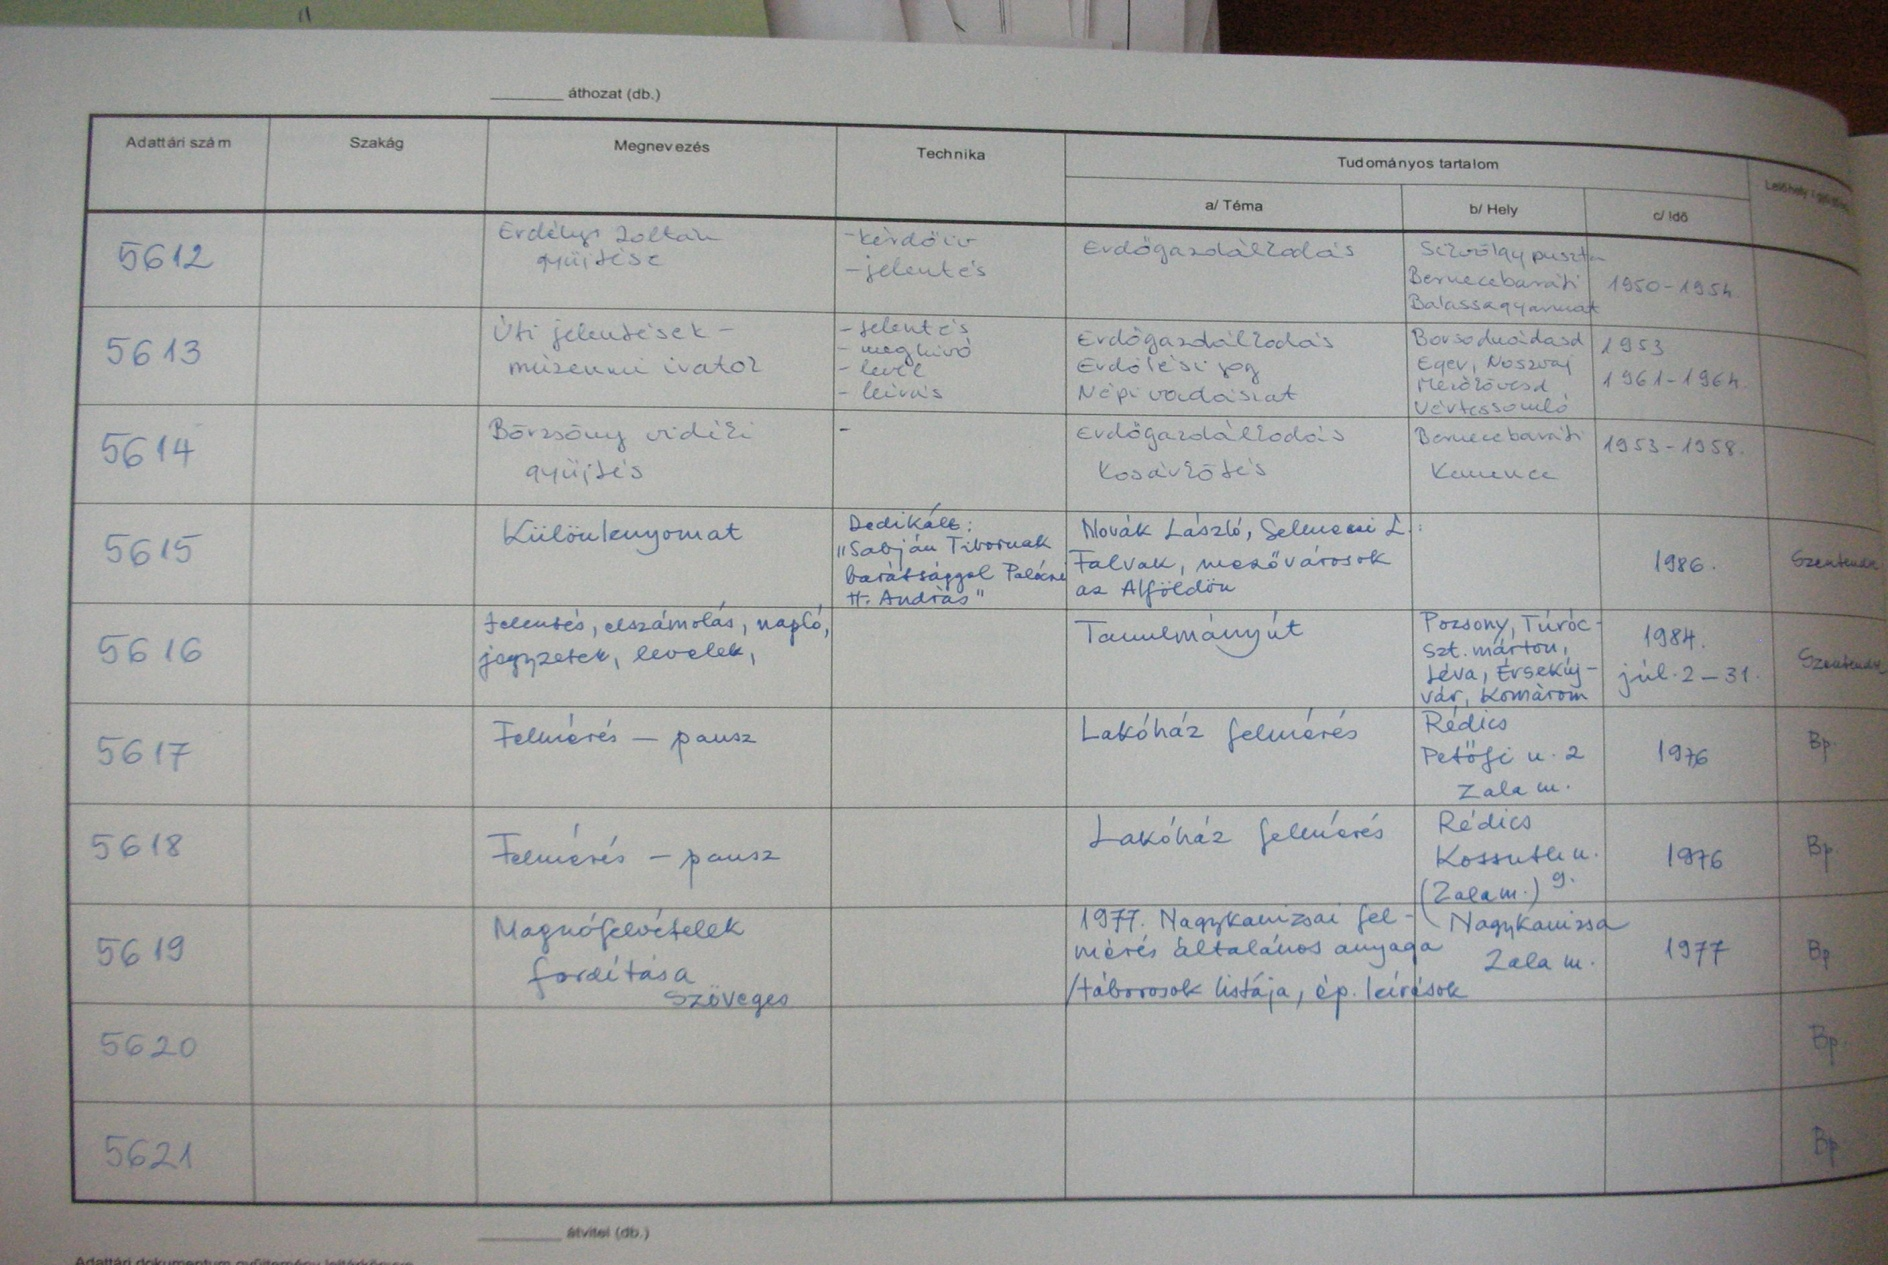 áthozat (db.)
Adattári szám
Szakág
Megnevezés
Technika
Tudományos tartalom
a/ Téma
b/ Hely
c/ Idő
5612
Erdélyi Zoltán
gyűjtése
- kérdőív
- jelentés
Erdőgazdálkodás
puszta
Bernecebaráti
Balassagyarmat
1950-1954.
5613
Úti jelentések -
múzeumi iratok
- jelentés
- meghívó
- levél
- leírás
Erdőgazdálkodás
Erdőlési jog
Népi vadászat
Borsodnádasd
Eger, Noszvaj
Mezőkövesd
Vértessomló
1953
1961-1964.
5614
Börzsöny vidéki
gyűjtés
-
Erdőgazdálkodás
Kosárkötés
Bernecebaráti
Kemence
1953-1958.
5615
Különlenyomat
Dedikált:
"Sabján Tibornak
barátsággal Paládi
András"
Novák László, Selmeczi L.:
Falvak, mezővárosok
az Alföldön
1986.
Szentendre
5616
Jelentés, elszámolás, napló,
jegyzetek, levelek,
Tanulmányút
Pozsony, Túróc-
szt. márton,
Léva, Érsekúj-
vár, Komárom
1984.
júl. 2 - 31.
Szentendre
5617
Felmérés - pausz
Lakóház felmérés
Rédics
Petőfi u. 2
Zala m.
1976
Bp.
5618
Felmérés - pausz
Lakóház felmérés
Rédics
Kossuth u.
(Zala m.) 9.
1976
Bp.
5619
Magnófelvételek
fordítása
szöveges
1977. Nagykanizsai fel-
mérés általános anyaga
/táborosok listája, ép. leírások
Nagykanizsa
Zala m.
1977
Bp
5620
Bp.
5621
Bp
átvitel (db.)